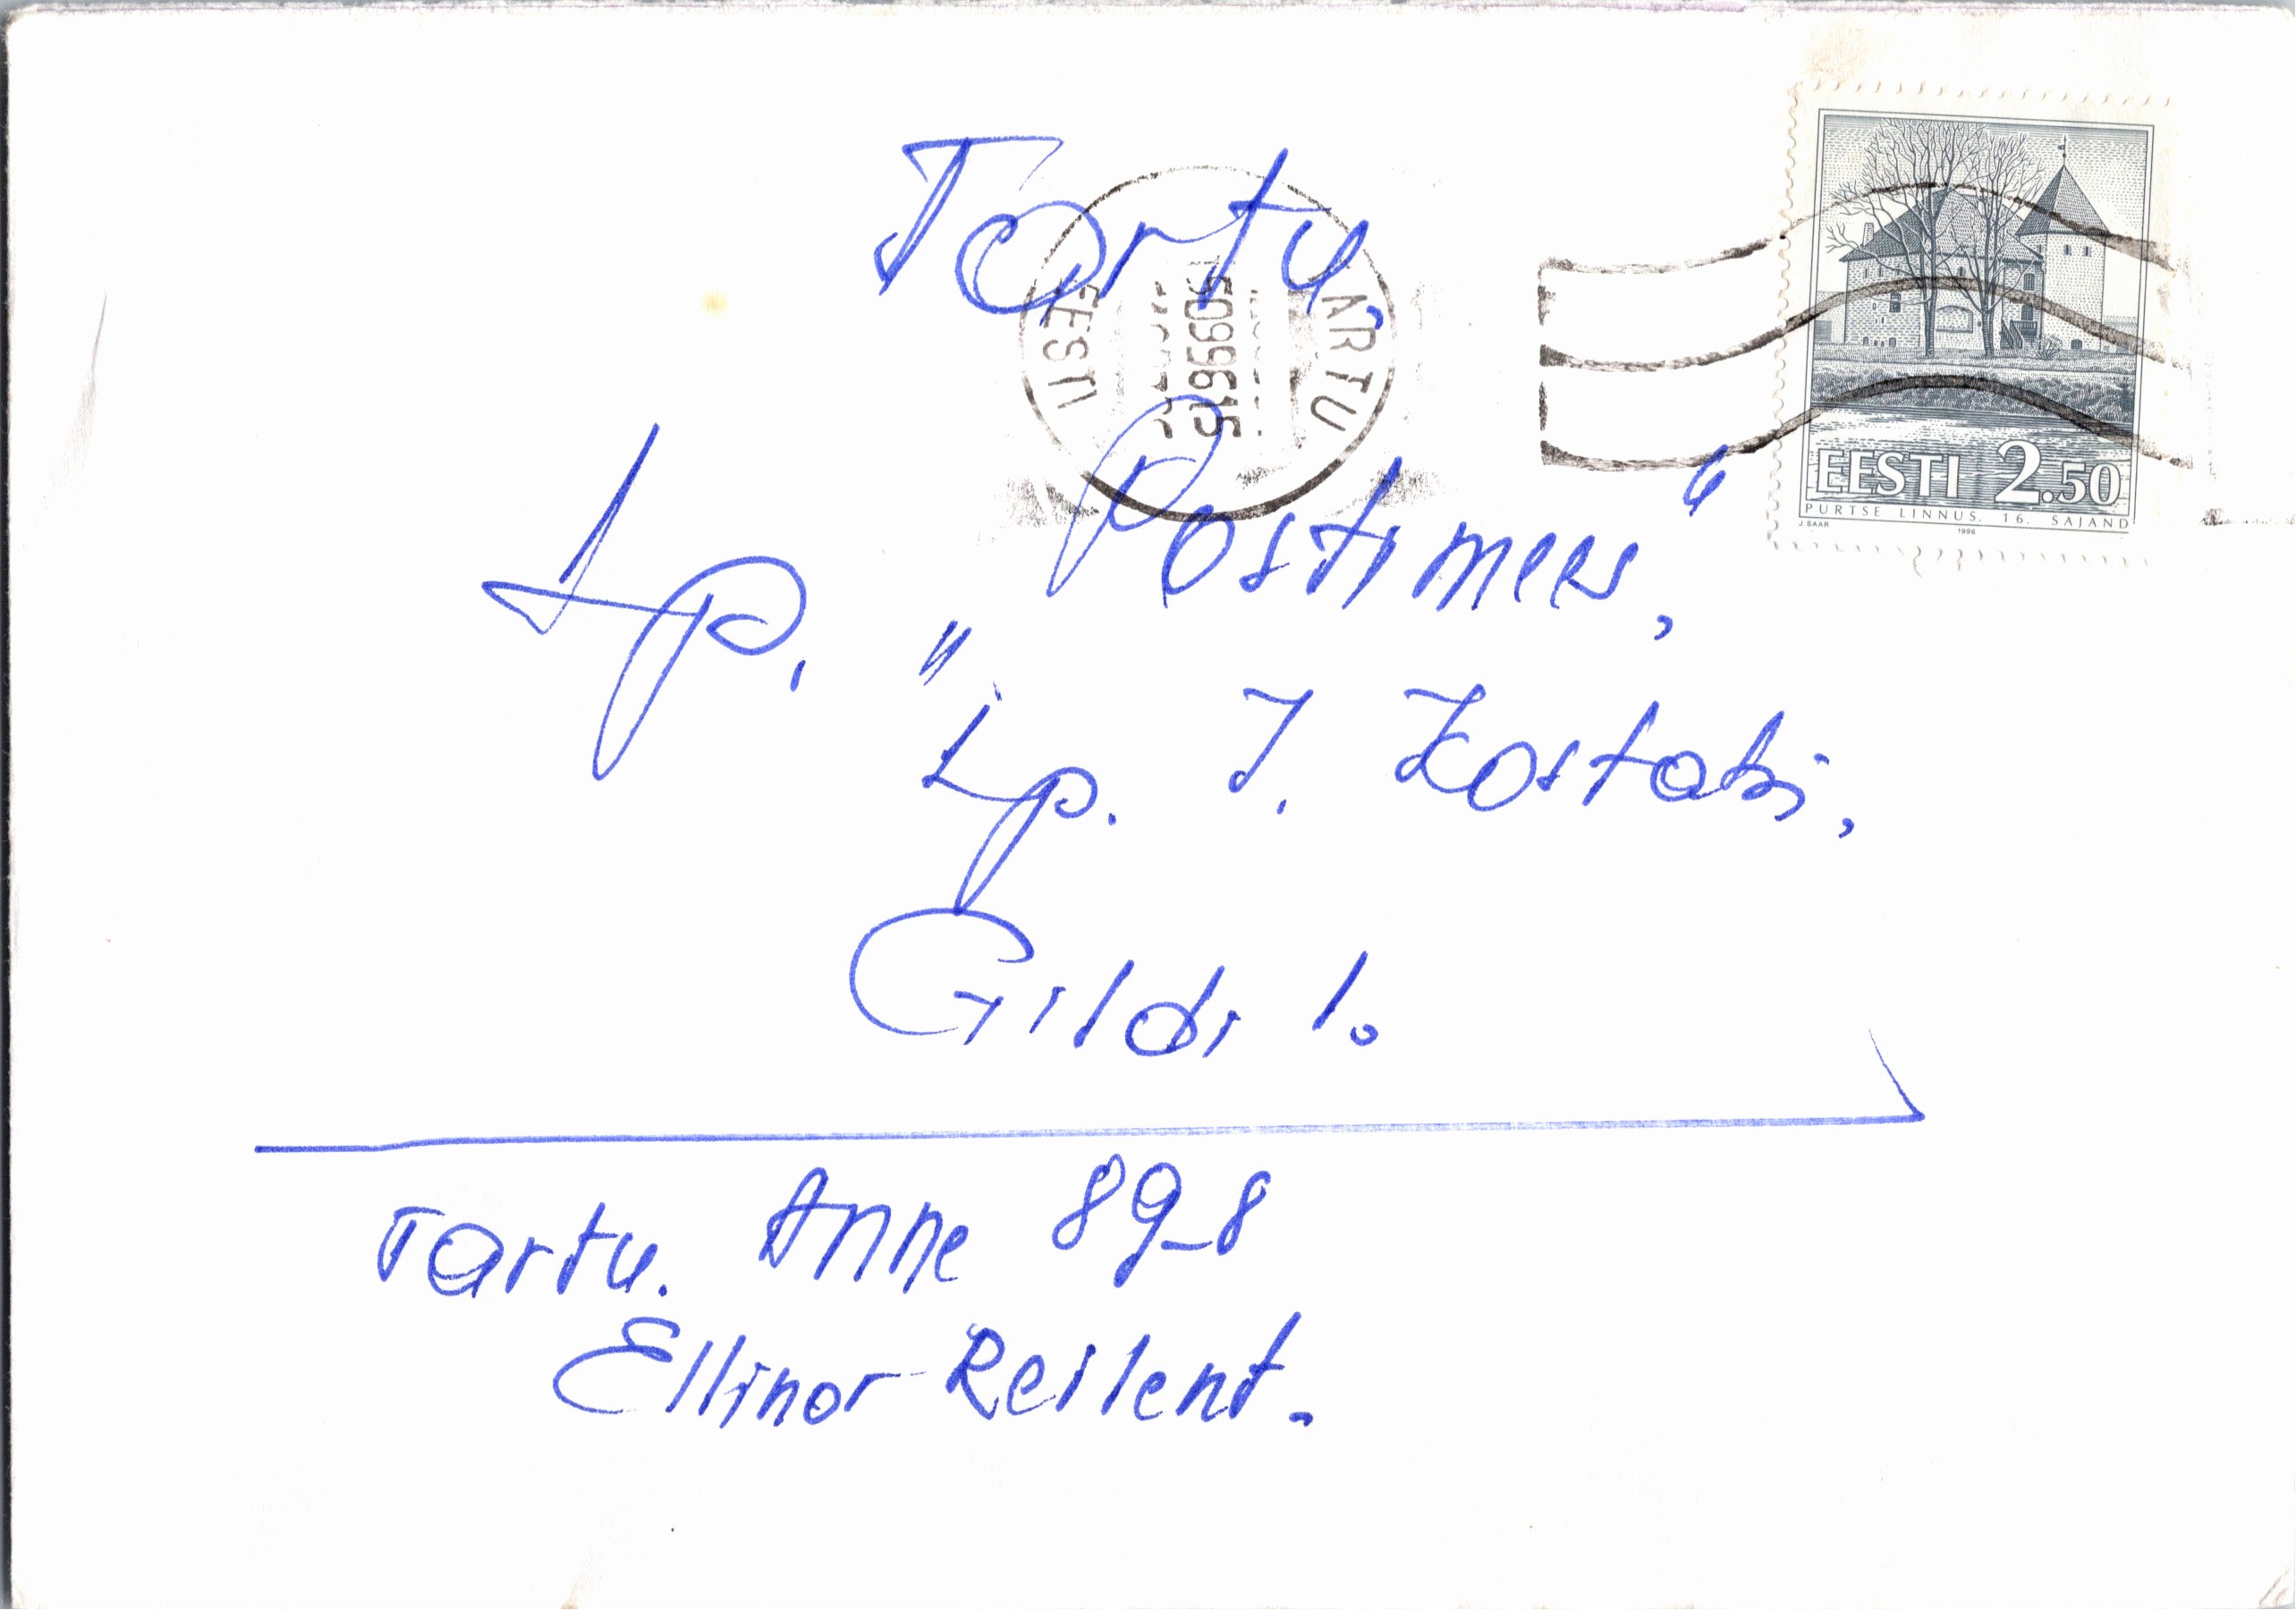 Tartu,
Lp. „Postimees“,
Lp. J. Kostabi,
Gildi 1.
Tartu. Anne 89-8
Ellinor Reilent.
EESTI
TARTU
EESTI 2.50
PURTSE LINNUS. 16. SAJAND
J. SAAR
1996